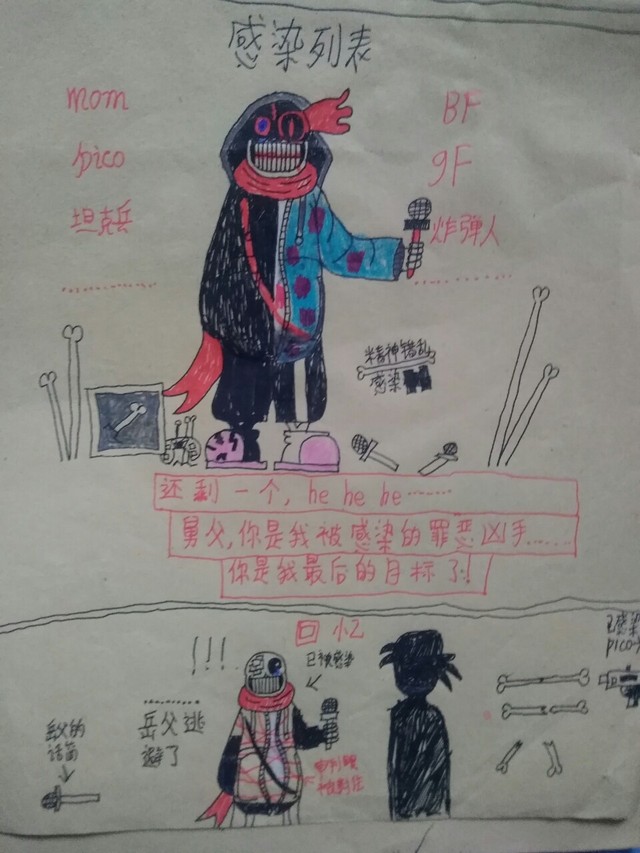 感染列表
mom
BF
pico
gF
坦克兵
炸弹人
精神错乱
感染
还剩一个, he he he……
舅父,你是我被感染的罪恶凶手……
你是我最后的目标了!
回忆
!!!
已被感染
已感染
pico
岳父逃
避了
岳父的
话筒
被割住